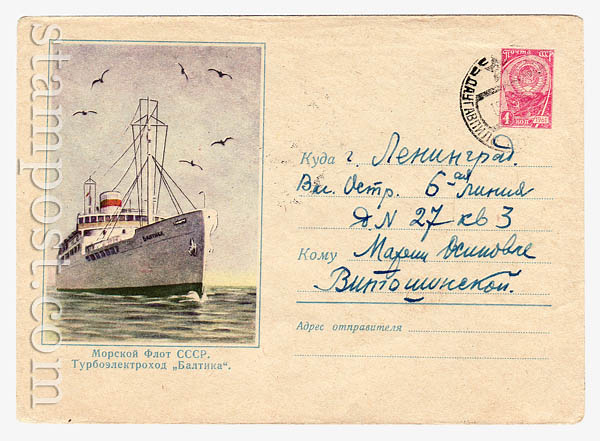 stampost.com
БАЛТИКА
Морской Флот СССР.
Турбоэлектроход „Балтика“.
Почта СССР
4 коп. 1961
ДАУГАВПИЛС
Куда г. Ленинград.
Вас. Остр. 6ая линия
д N 27 кв 3
Кому Марии Осиповне
Витошинской.
Адрес отправителя